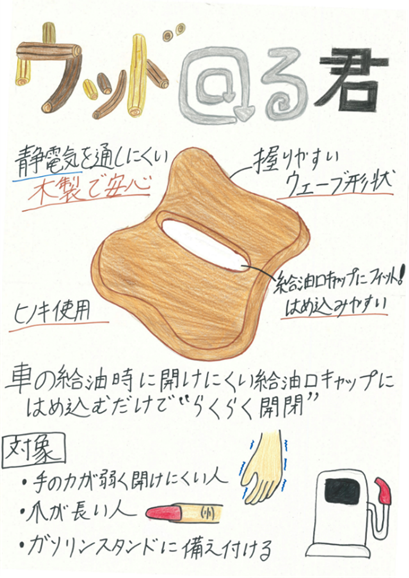 ウッド@る君
静電気を通しにくい
木製で安心
握りやすい
ウェーブ形状
給油口キャップにフィット!
はめ込みやすい
ヒノキ使用
車の給油時に開けにくい給油口キャップに
はめ込むだけで“らくらく開閉”
対象
・手の力が弱く開けにくい人
・爪が長い人
・ガソリンスタンドに備え付ける